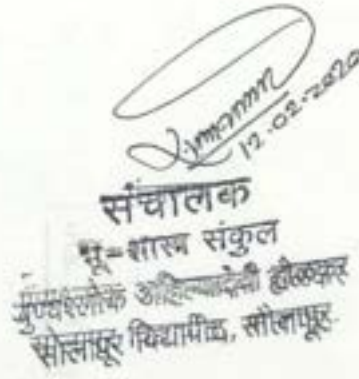 12.02.2020
संचालक
भू-शास्त्र संकुल
पुण्यश्लोक अहिल्यादेवी होळकर
सोलापूर विद्यापीठ, सोलापूर.